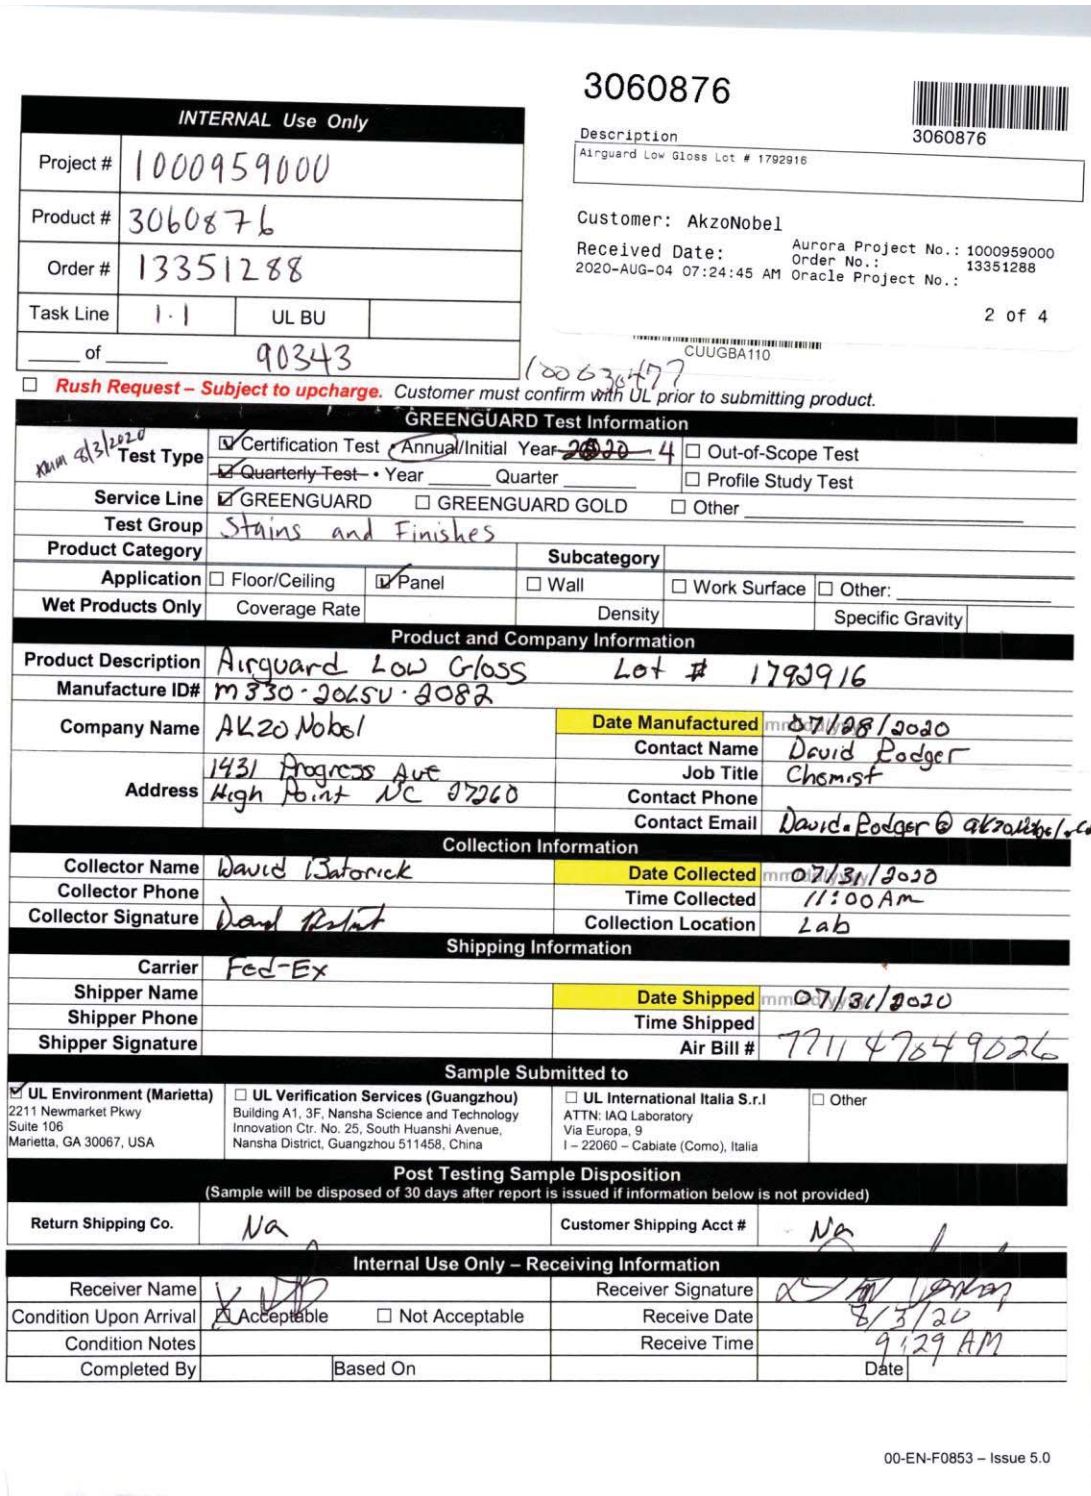 3060876
3060876
Description
Airguard Low Gloss Lot # 1792916
Customer: AkzoNobel
Received Date:
2020-AUG-04 07:24:45 AM
Aurora Project No.: 1000959000
Order No.: 13351288
Oracle Project No.:
2 of 4
CUUGBA110
INTERNAL Use Only
Project # 1000959000
Product # 3060876
Order # 13351288
Task Line 1.1 UL BU
____ of ____ 90343
☐ Rush Request – Subject to upcharge. Customer must confirm with UL prior to submitting product.
GREENGUARD Test Information
8/3/2020
Test Type ☑ Certification Test • Annual/Initial Year 2020 4 ☐ Out-of-Scope Test
☑ Quarterly Test • Year ____ Quarter ____ ☐ Profile Study Test
Service Line ☑ GREENGUARD ☐ GREENGUARD GOLD ☐ Other ____
Test Group Stains and Finishes
Product Category Subcategory
Application ☐ Floor/Ceiling ☑ Panel ☐ Wall ☐ Work Surface ☐ Other: ____
Wet Products Only Coverage Rate Density Specific Gravity
Product and Company Information
Product Description Airguard Low Gloss Lot # 1792916
Manufacture ID# M330-20LSU-2082
Company Name AkzoNobel Date Manufactured 07/28/2020
Contact Name David Rodger
Address 1431 Progress Ave Job Title Chemist
High Point NC 27260 Contact Phone
Contact Email David.Rodger@akzoNobel.co
Collection Information
Collector Name David Batorick Date Collected 07/31/2020
Collector Phone Time Collected 11:00Am
Collector Signature Collection Location Lab
Shipping Information
Carrier Fed-Ex
Shipper Name Date Shipped 07/31/2020
Shipper Phone Time Shipped
Shipper Signature Air Bill # 771147649026
Sample Submitted to
☑ UL Environment (Marietta)
2211 Newmarket Pkwy
Suite 106
Marietta, GA 30067, USA
☐ UL Verification Services (Guangzhou)
Building A1, 3F, Nansha Science and Technology
Innovation Ctr. No. 25, South Huanshi Avenue,
Nansha District, Guangzhou 511458, China
☐ UL International Italia S.r.l
ATTN: IAQ Laboratory
Via Europa, 9
I – 22060 – Cabiate (Como), Italia
☐ Other
Post Testing Sample Disposition
(Sample will be disposed of 30 days after report is issued if information below is not provided)
Return Shipping Co. Na Customer Shipping Acct # Na
Internal Use Only – Receiving Information
Receiver Name Receiver Signature
Condition Upon Arrival ☒ Acceptable ☐ Not Acceptable Receive Date 8/3/20
Condition Notes Receive Time 9:29 AM
Completed By Based On Date
00-EN-F0853 – Issue 5.0